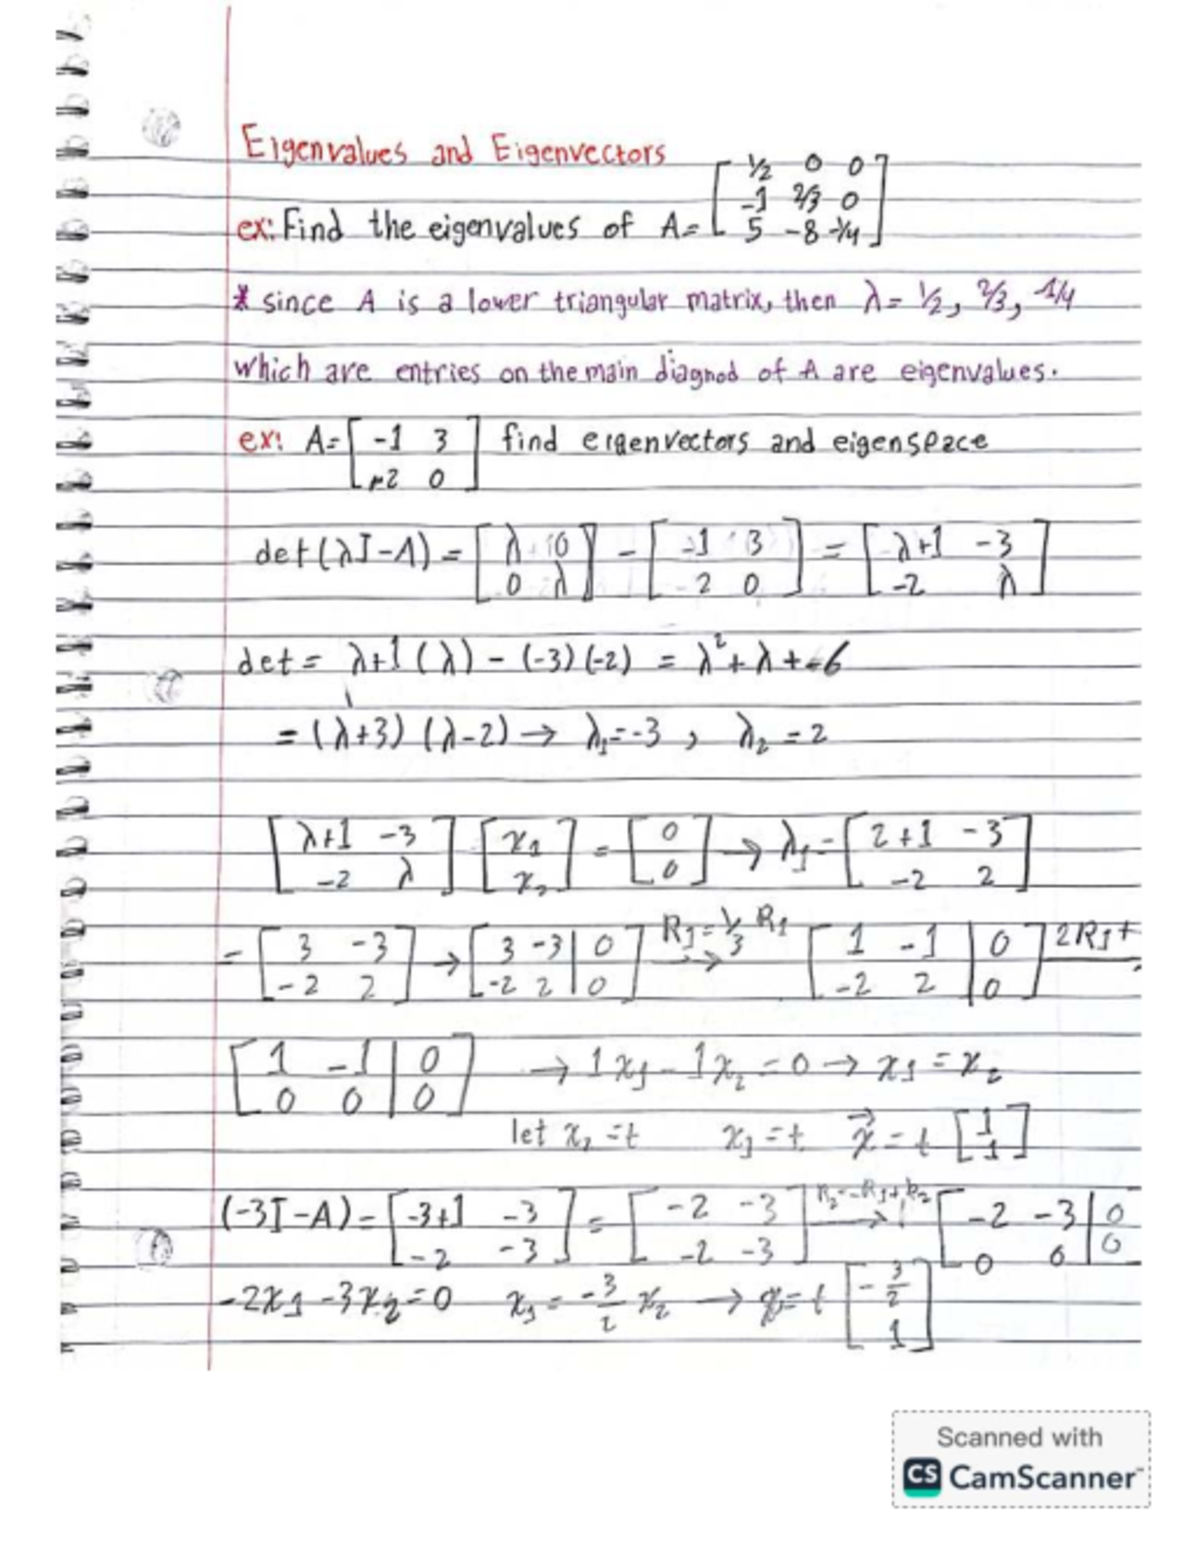 Eigenvalues and Eigenvectors
ex: Find the eigenvalues of A= [ 1/2 0 0
-1 2/3 0
5 -8 -1/4 ]
* since A is a lower triangular matrix, then λ= 1/2, 2/3, -1/4
which are entries on the main diagnod of A are eigenvalues.
ex: A= [ -1 3
2 0 ] find eigenvectors and eigenspace
det(λI-A) = [ λ 0
0 λ ] - [ -1 3
2 0 ] = [ λ+1 -3
-2 λ ]
det = λ+1 (λ) - (-3)(-2) = λ² + λ + -6
= (λ+3) (λ-2) → λ₁=-3 , λ₂ = 2
[ λ+1 -3
-2 λ ] [ x₁
x₂ ] = [ 0
0 ] → λ₁ = [ 2+1 -3
-2 2 ]
= [ 3 -3
-2 2 ] → [ 3 -3 | 0
-2 2 | 0 ] R₁ = 1/3 R₁ → [ 1 -1 | 0
-2 2 | 0 ] 2R₁+
[ 1 -1 | 0
0 0 | 0 ] → 1x₁ - 1x₂ = 0 → x₁ = x₂
let x₂ = t x₁ = t x⃗ = t [ 1
1 ]
(-3I-A) = [ -3+1 -3
-2 -3 ] = [ -2 -3
-2 -3 ] R₂=-R₁+R₂ → [ -2 -3 | 0
0 0 | 0 ]
-2x₁ -3x₂=0 x₁ = -3/2 x₂ → x = t [ -3/2
1 ]
Scanned with
CS CamScanner